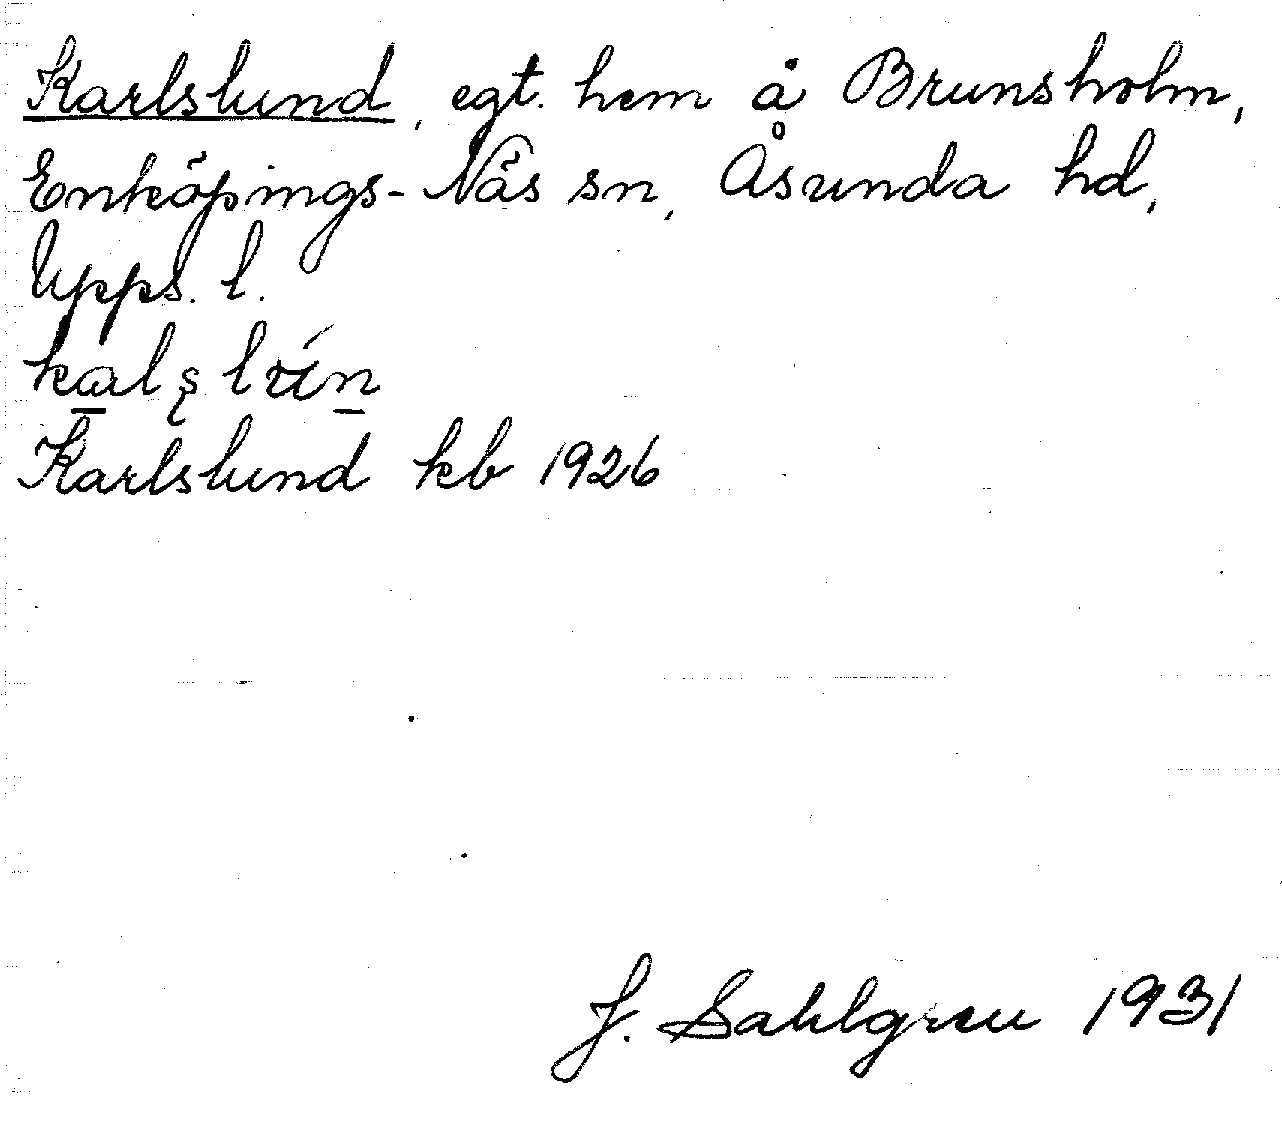 Karlslund, egt. hem å Brunsholm,
Enköpings-Näs sn, Åsunda hd,
Upps. l.
Karlslund kb 1926
J. Sahlgren 1931